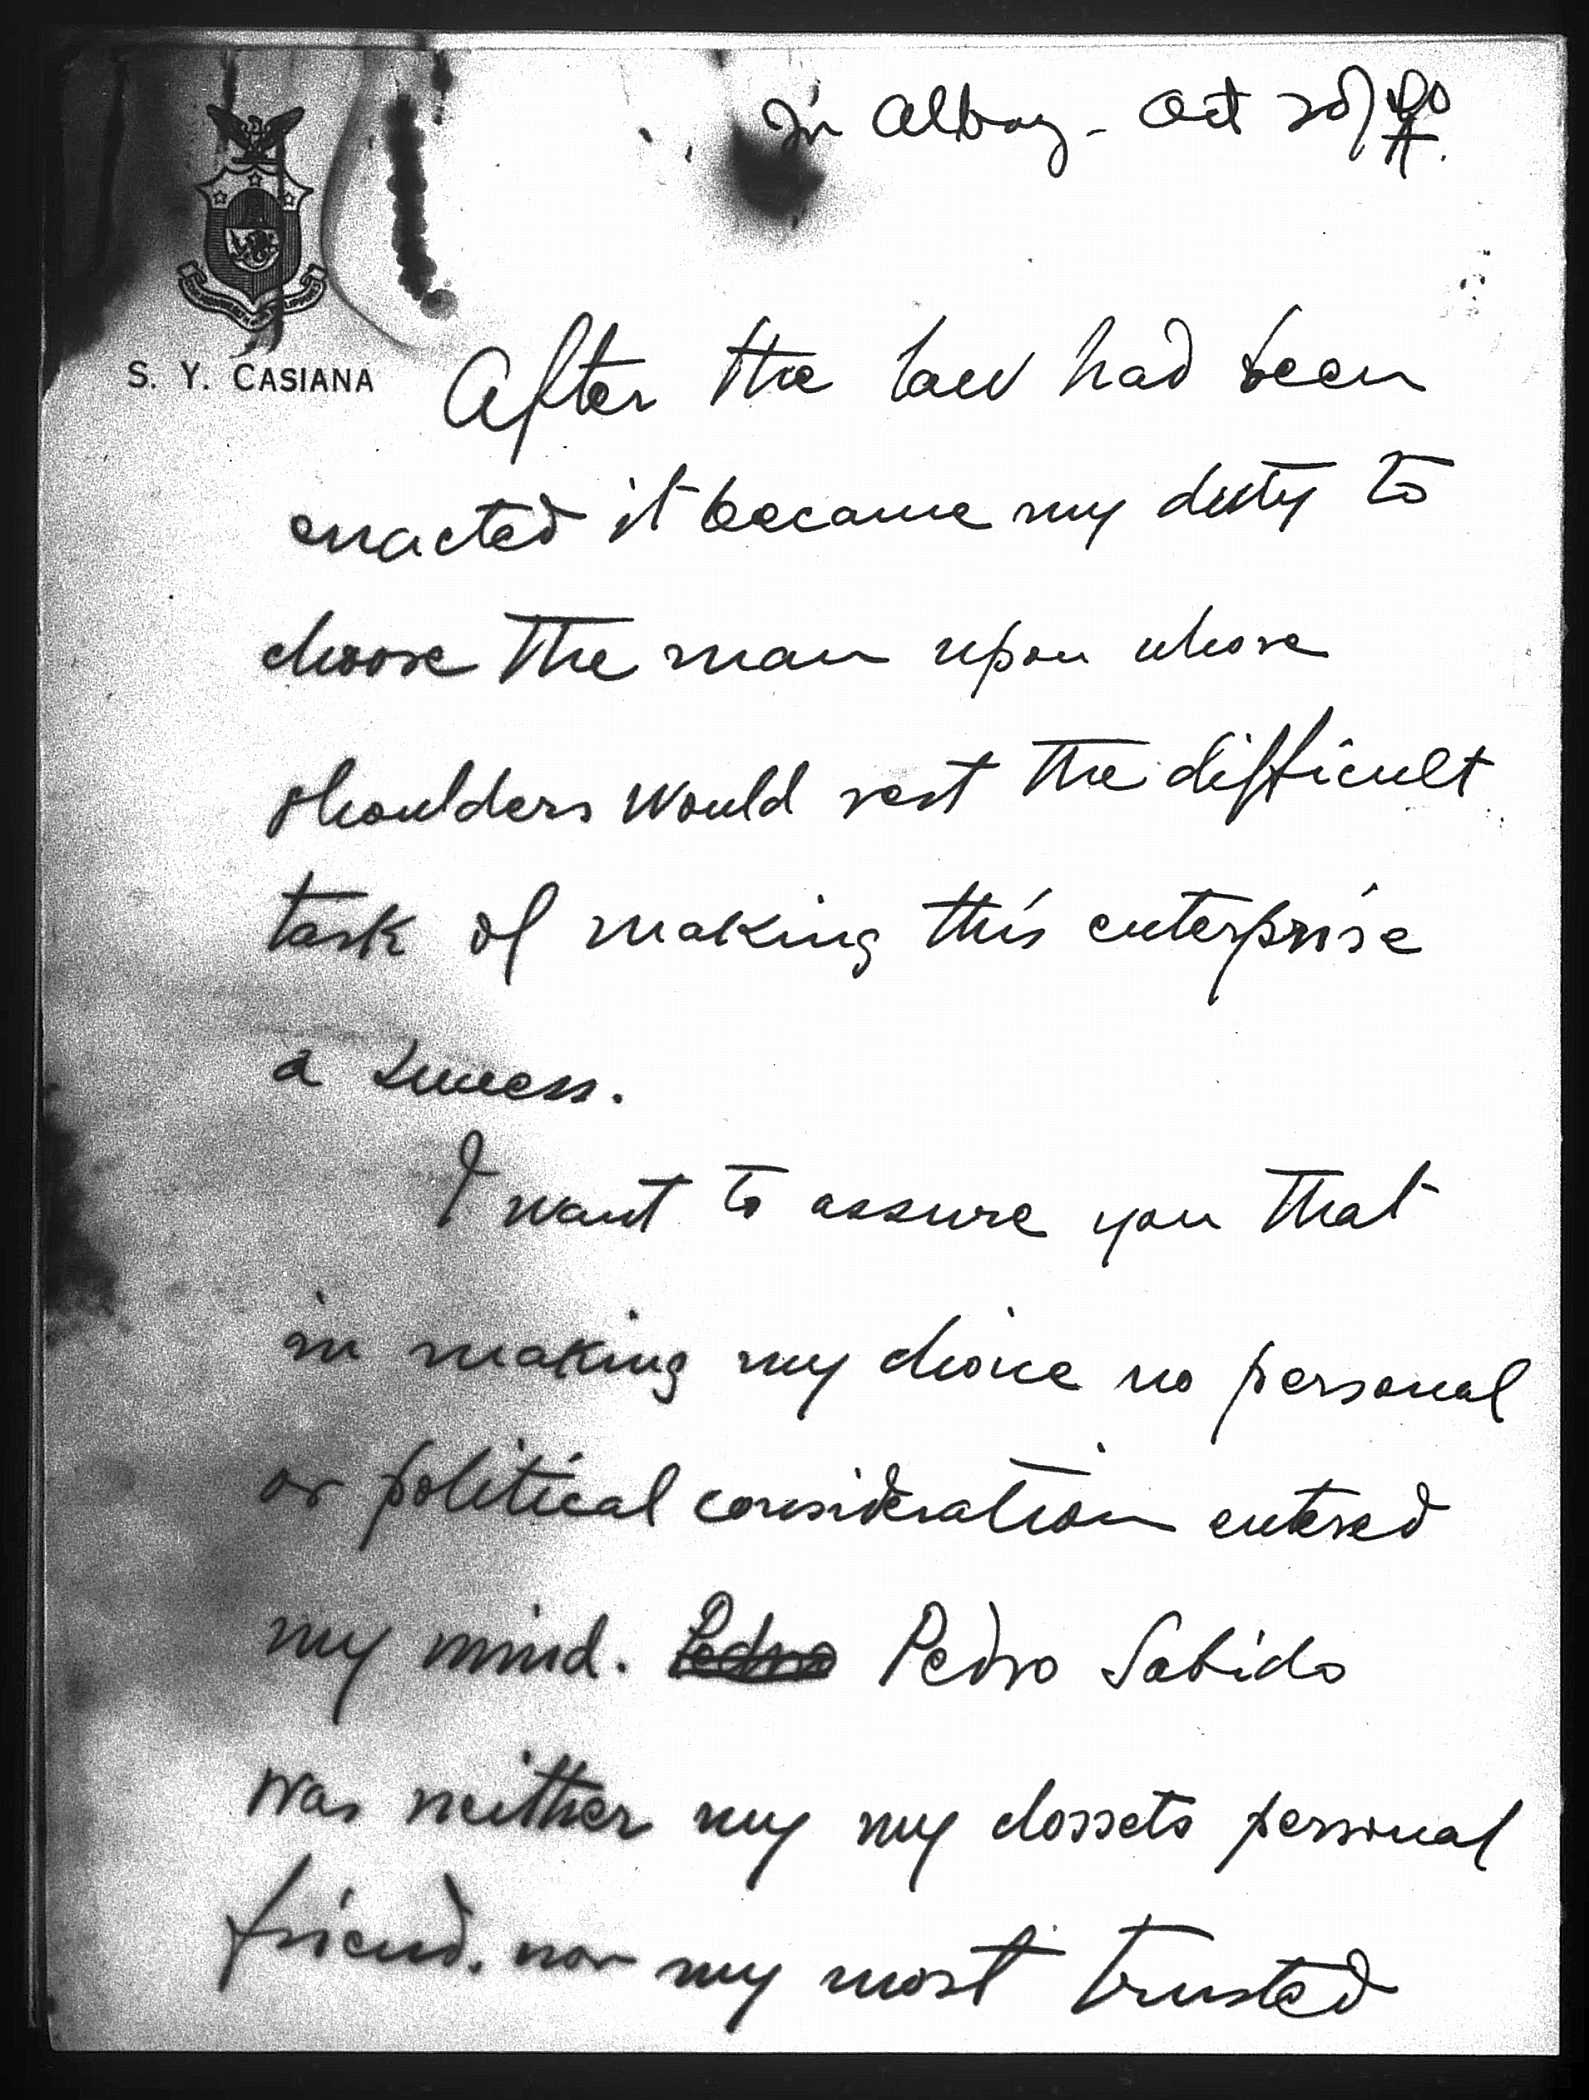 In Albay - Oct 20/40
S. Y. CASIANA
After the law had been
enacted it became my duty to
choose the man upon whose
shoulders would rest the difficult
task of making this enterprise
a success.
I want to assure you that
in making my choice no personal
or political consideration entered
my mind. Pedro Pedro Sabido
was neither my my clossets personal
friend. nor my most trusted